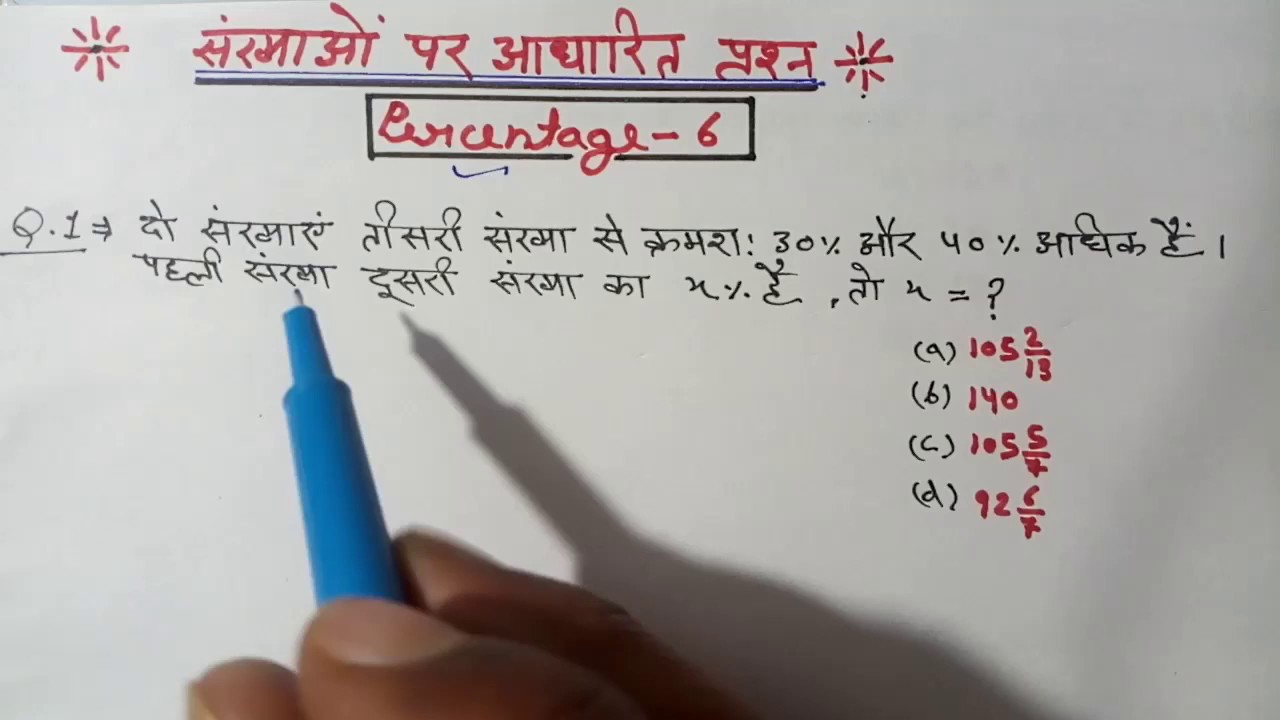 संख्याओं पर आधारित प्रश्न
Percentage - 6
Q.1⇒ दो संख्याएं तीसरी संख्या से क्रमश: 30% और 40% अधिक हैं।
पहली संख्या दूसरी संख्या का x% है, तो x = ?
(a) 105 2/13
(b) 140
(c) 105 5/7
(d) 92 6/7